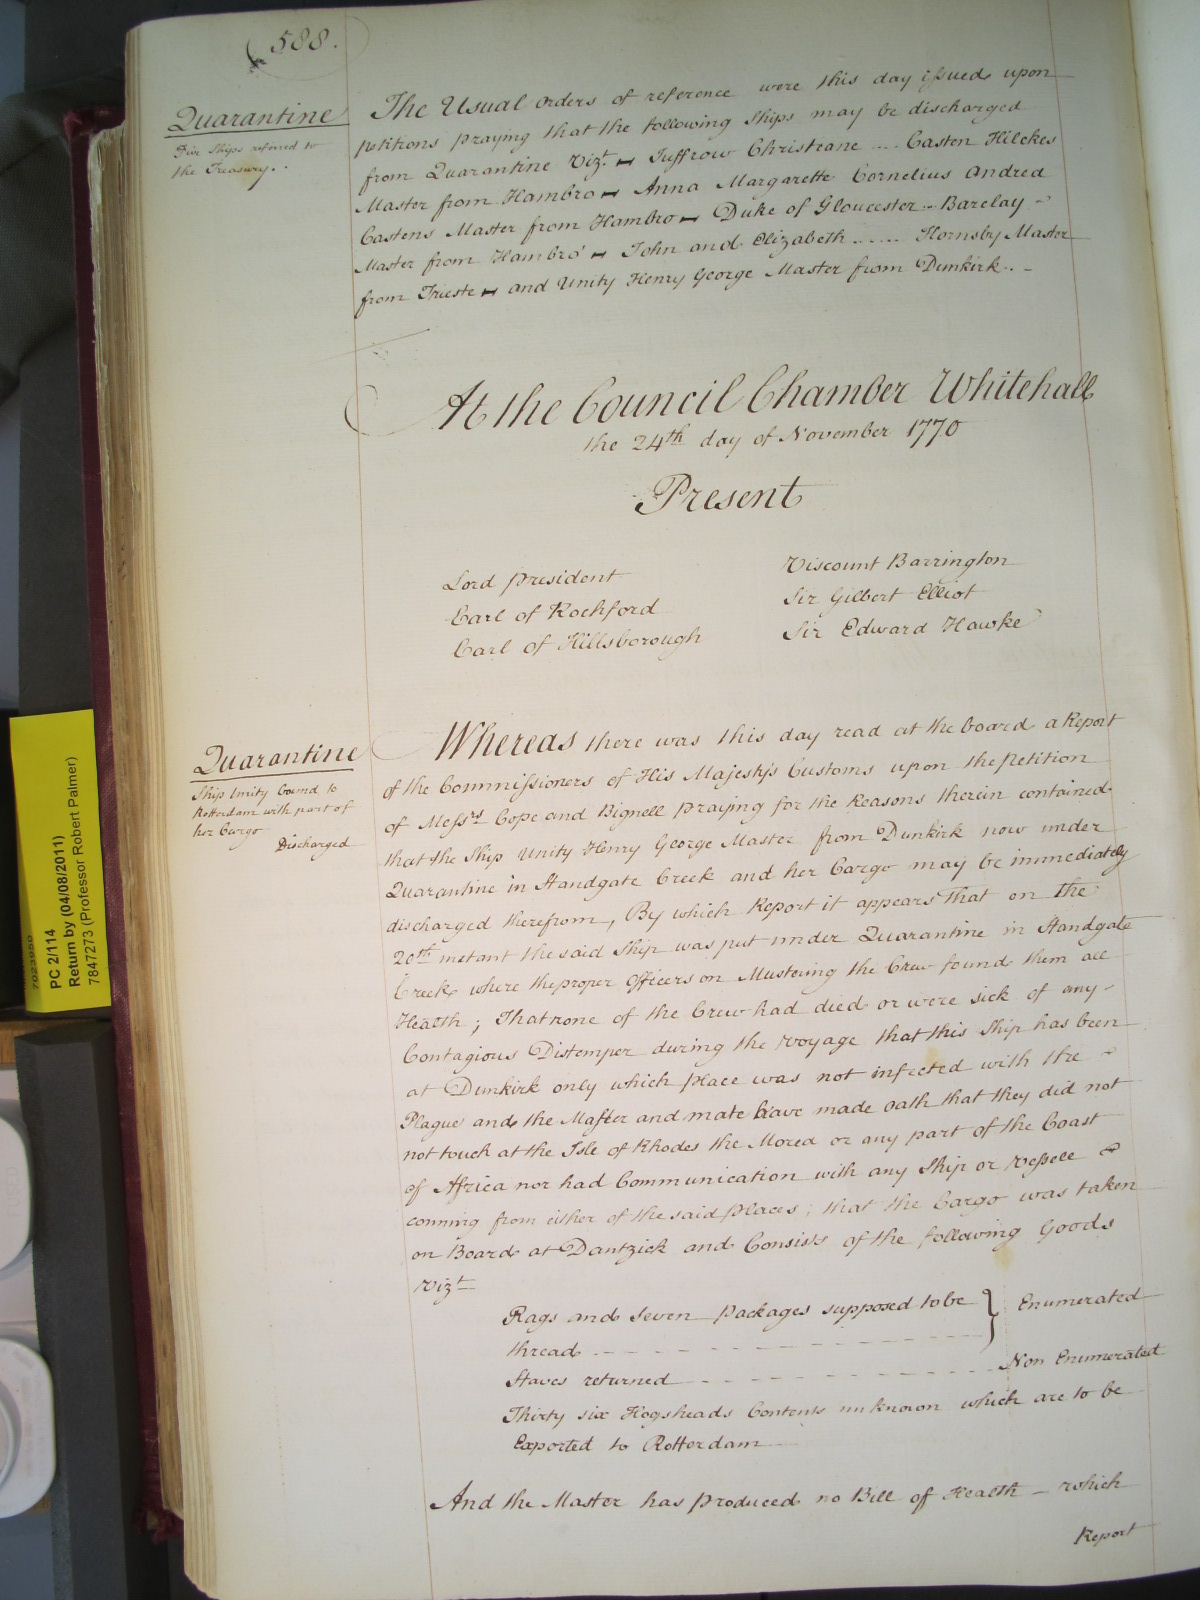 588.
Quarantine
Five Ships referred to
the Treasury..
The Usual orders of reference were this day issued upon
petitions praying that the following Ships may be discharged
from Quarantine Vizt. Juffrow Christeane .... Casten Hilckes
Master from Hambro Anna Margarette Cornelius Andred
Castens Master from Hambro Duke of Gloucester .. Barclay
Master from Hambro' John and Elizabeth ..... Hornsby Master
from Trieste and Unity Henry George Master from Dunkirk..
At the Council Chamber Whitehall
the 24th day of November 1770
Present
Lord President
Earl of Rochford
Earl of Hillsborough
Viscount Barrington
Sir Gilbert Elliot
Sir Edward Hawke
Quarantine
Ship Unity bound to
Rotterdam with part of
her Cargo
Discharged
Whereas there was this day read at the board a Report
of the Commissioners of His Majestys Customs upon the Petition
of Messrs Cope and Bignell praying for the Reasons therein contained
that the Ship Unity Henry George Master from Dunkirk now under
Quarantine in Standgate Creek and her Cargo may be immediately
discharged therefrom, By which Report it appears That on the
20th instant the said Ship was put under Quarantine in Standgate
Creek where the proper Officers on Mustering the Crew found them all
Health; That none of the Crew had died or were sick of any
Contagious Distemper during the Voyage that this Ship has been
at Dunkirk only which place was not infected with the
Plague and the Master and mate have made oath that they did not
not touch at the Isle of Rhodes the Morea or any part of the Coast
of Africa nor had Communication with any Ship or Vessell
comming from either of the said places; that the Cargo was taken
on Board at Dantzick and Consists of the following Goods
Vizt
Rags and Seven Packages supposed to be } Enumerated
thread
Staves returned Non Enumerated
Thirty six Hogsheads Contents unknown which are to be
Exported to Rotterdam
And the Master has produced no Bill of Health – which
Report
PC 2/114
Return by (04/08/2011)
7847273 (Professor Robert Palmer)